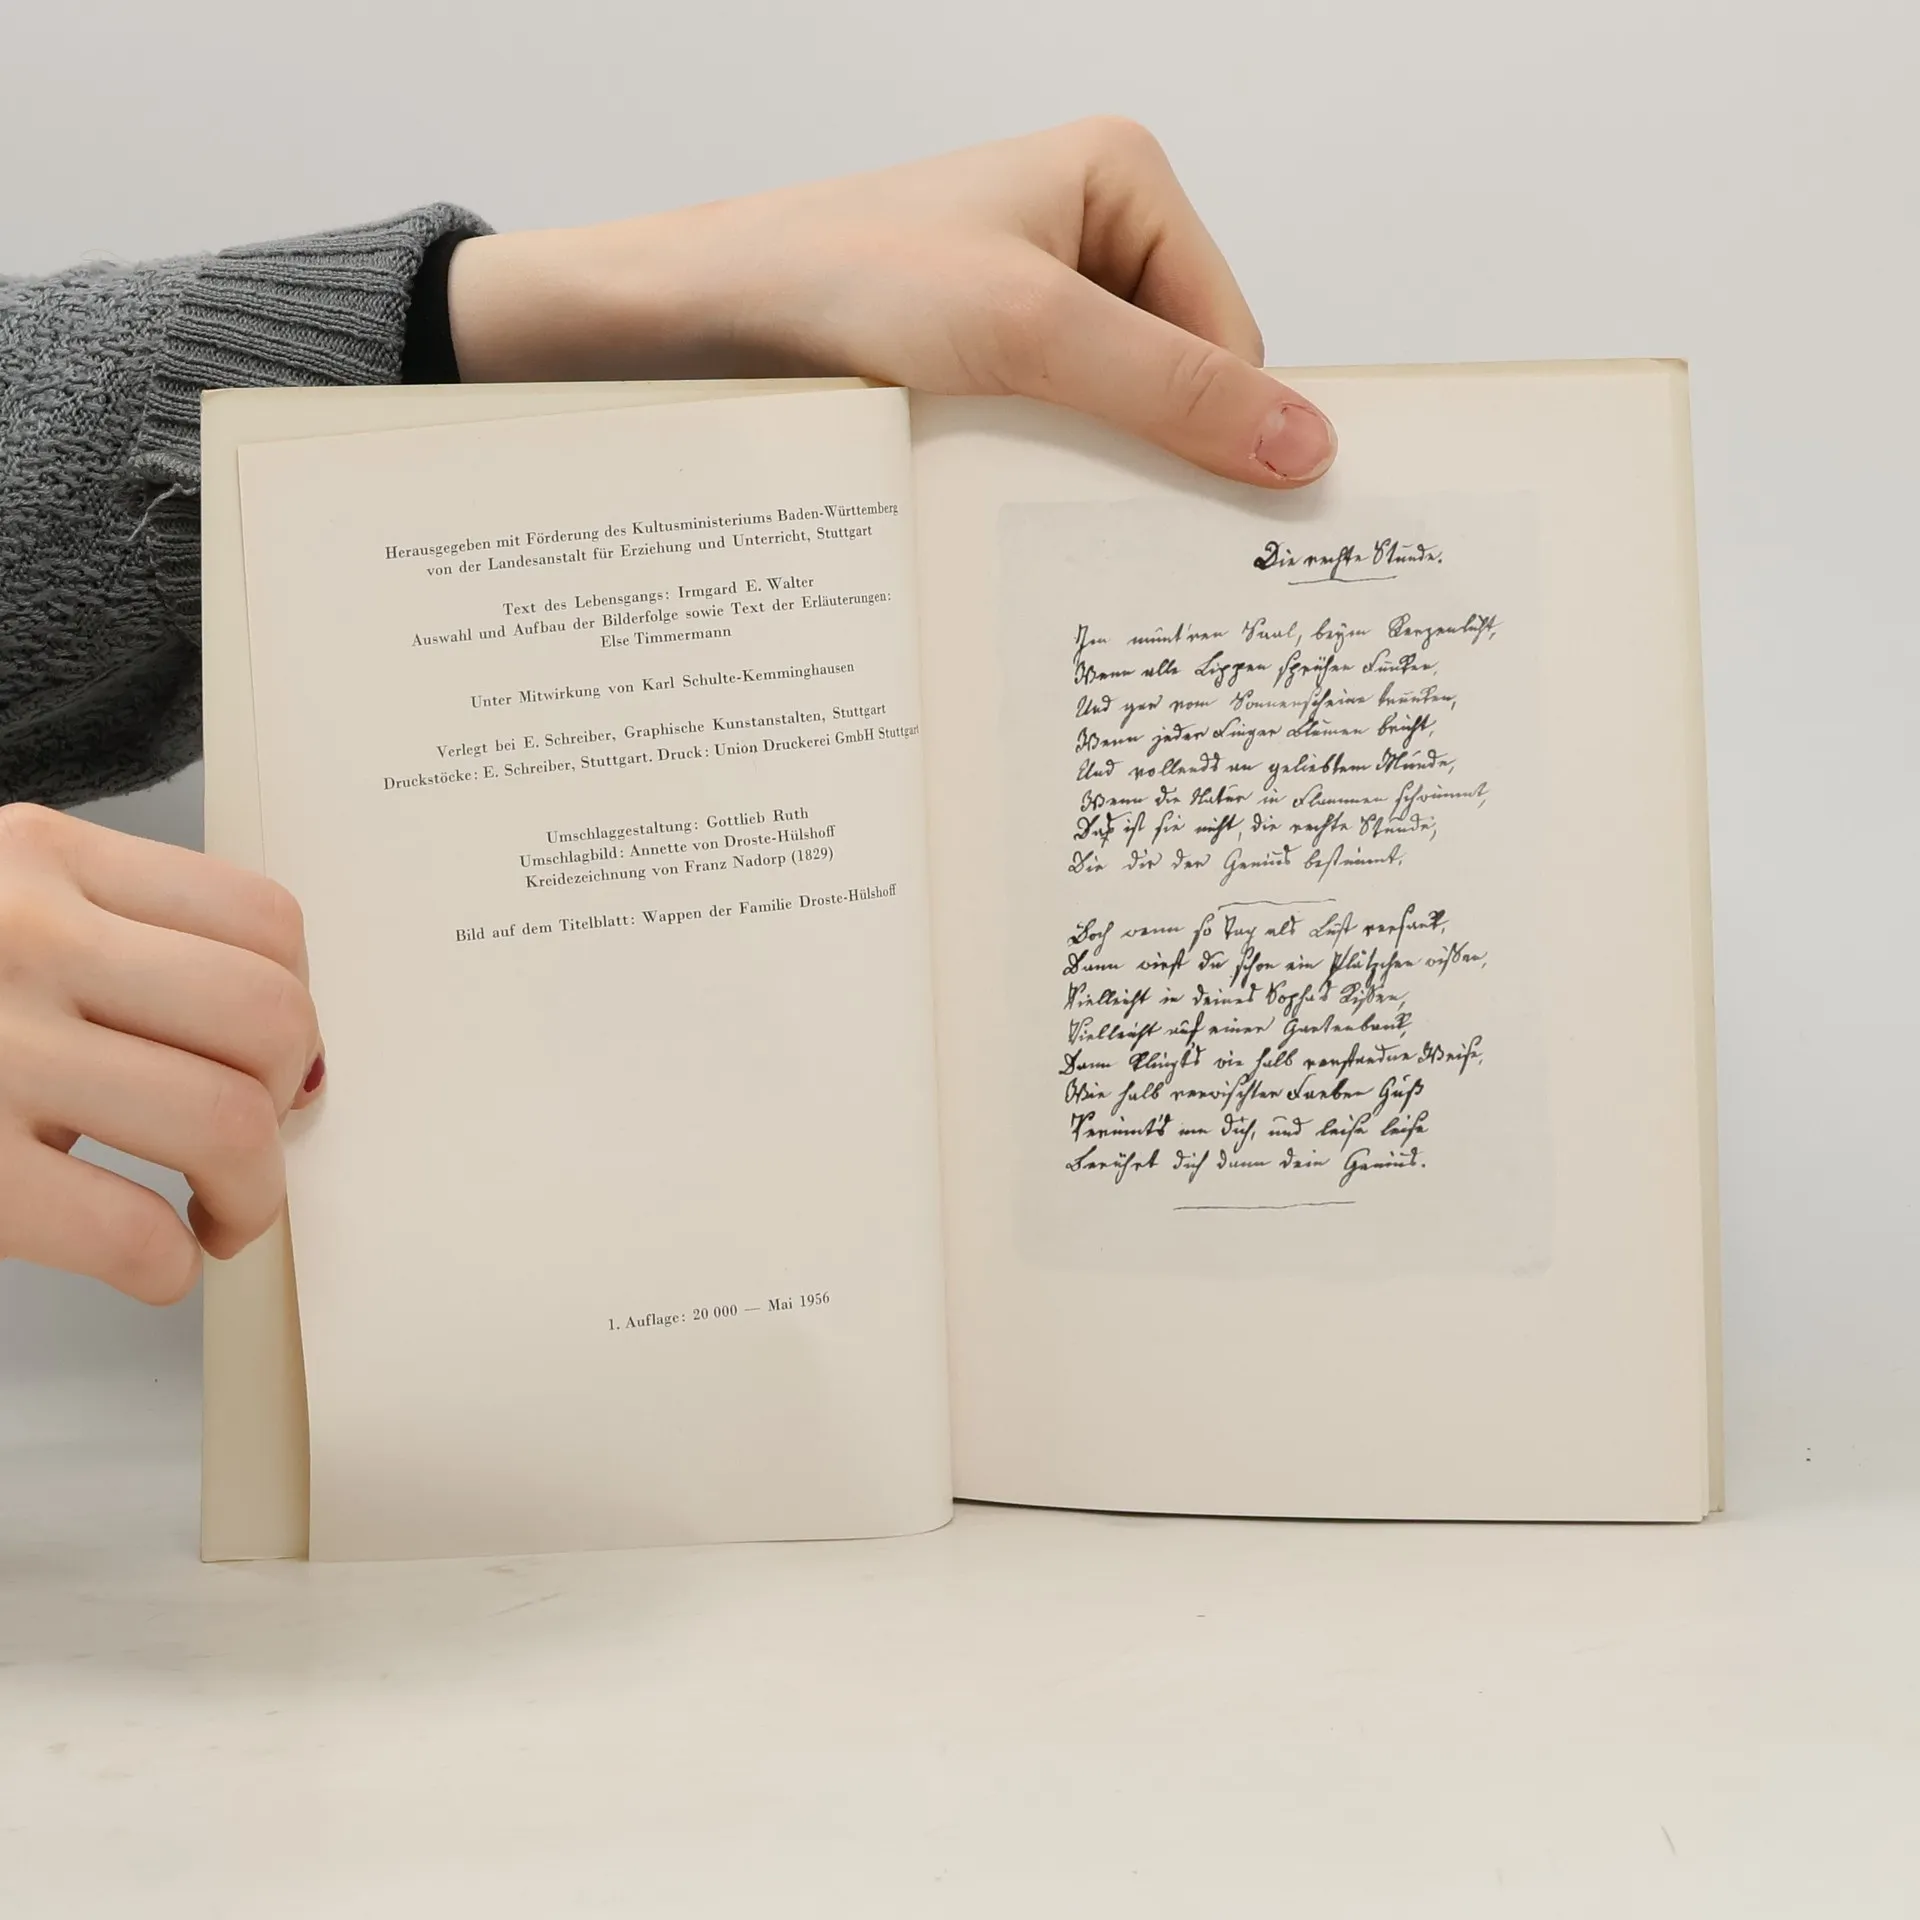 Herausgegeben mit Förderung des Kultusministeriums Baden-Württemberg
von der Landesanstalt für Erziehung und Unterricht, Stuttgart
Text des Lebensgangs: Irmgard E. Walter
Auswahl und Aufbau der Bilderfolge sowie Text der Erläuterungen:
Else Timmermann
Unter Mitwirkung von Karl Schulte-Kemminghausen
Verlegt bei E. Schreiber, Graphische Kunstanstalten, Stuttgart
Druckstöcke: E. Schreiber, Stuttgart. Druck: Union Druckerei GmbH Stuttgart
Umschlaggestaltung: Gottlieb Ruth
Umschlagbild: Annette von Droste-Hülshoff
Kreidezeichnung von Franz Nadorp (1829)
Bild auf dem Titelblatt: Wappen der Familie Droste-Hülshoff
1. Auflage: 20 000 — Mai 1956
Die rechte Stunde.
Im munt'ren Saal, beym Kerzenlicht,
Wenn alle Lippen sprühen Funken,
Und gar vom Sonnenscheine trunken,
Wenn jeder Finger Blumen bricht,
Und vollends an geliebtem Munde,
Wenn die Natur in Flammen schwimmt,
Das ist sie nicht, die rechte Stunde,
Die dir der Genius bestimmt.
Doch wenn so Tag als Lust versank,
Dann wirst du schon ein Plätzchen wissen,
Vielleicht in deines Sophas Kissen,
Vielleicht auf einer Gartenbank,
Dann klingt's wie halb verstandne Weise,
Wie halb verwischter Farben Guß
Verrinnt's um dich, und leise leise
Berührt dich dann dein Genius.